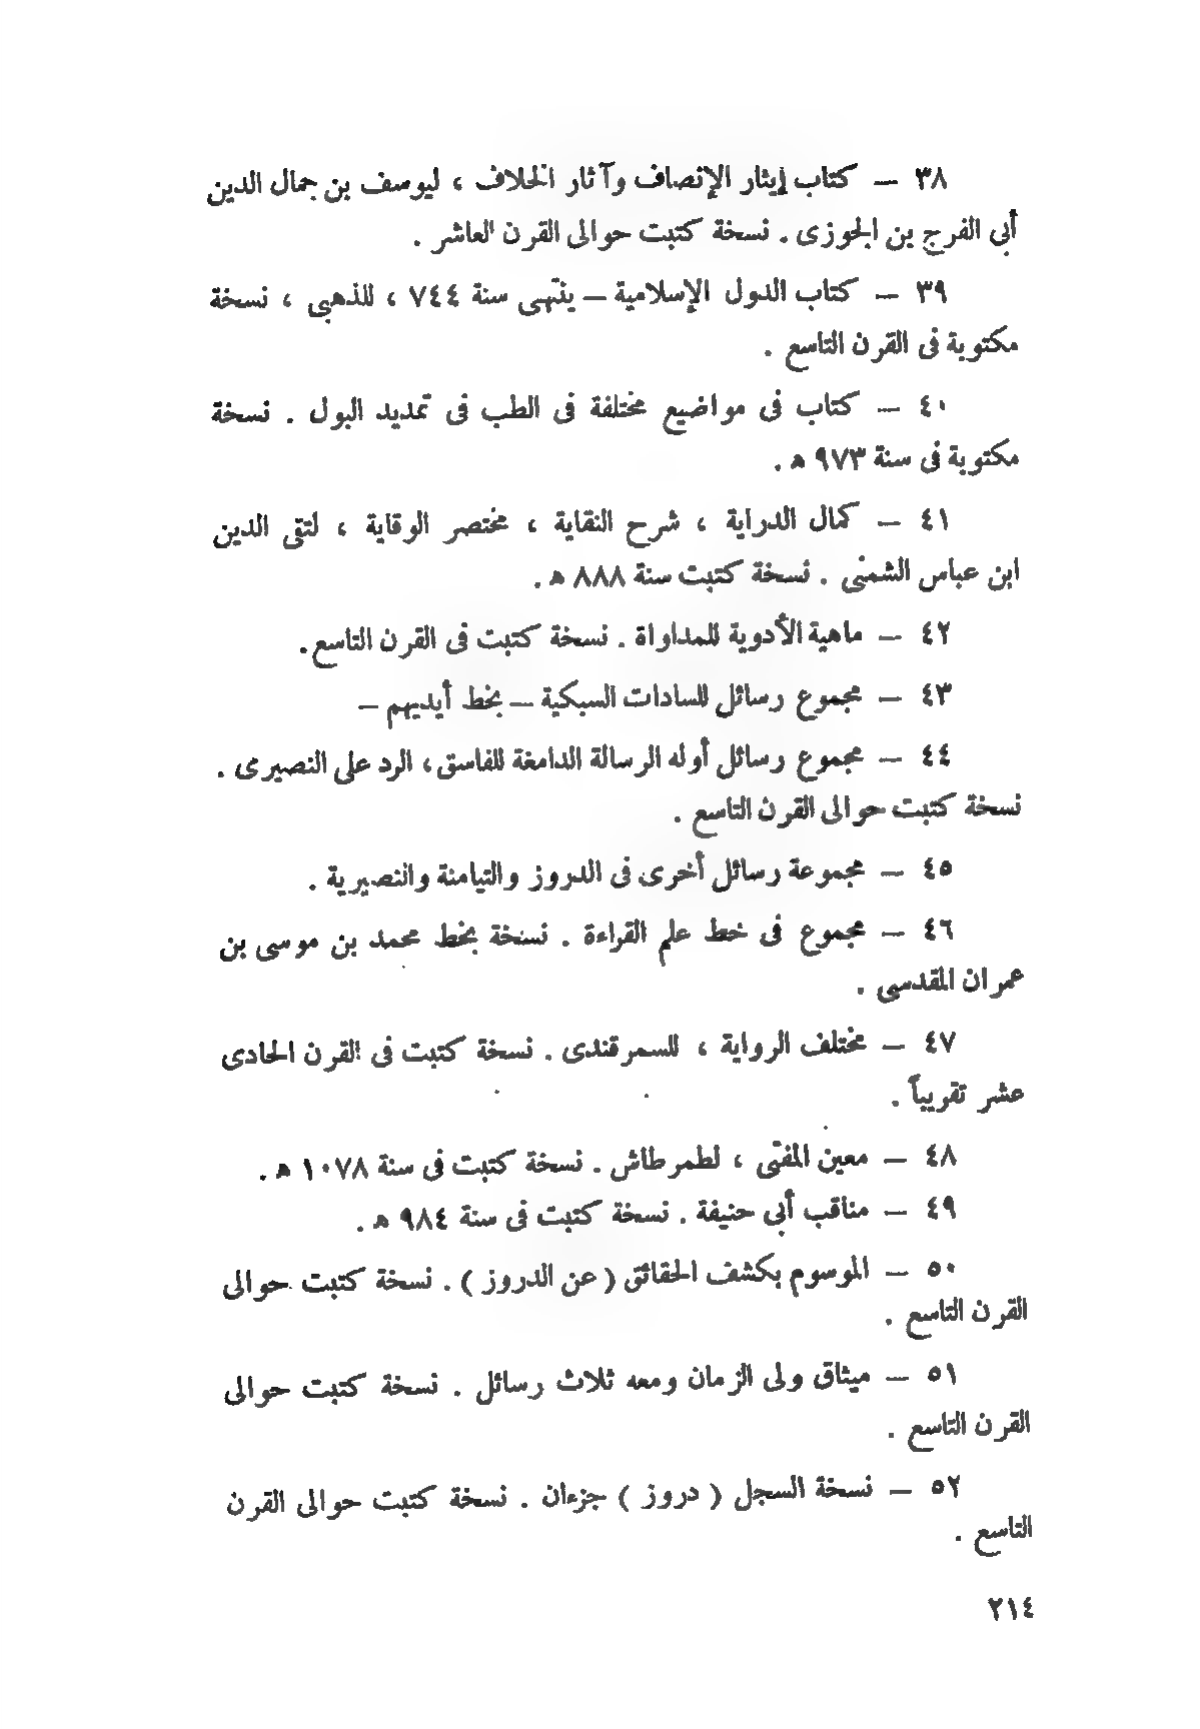 ٣٨ — كتاب إيثار الإنصاف وآثار الخلاف ، ليوسف بن جمال الدين
أبى الفرج بن الجوزى . نسخة كتبت حوالى القرن العاشر .
٣٩ — كتاب الدول الإسلامية — ينتهى سنة ٧٤٤ ، للذهبى ، نسخة
مكتوبة فى القرن التاسع .
٤٠ — كتاب فى مواضيع مختلفة فى الطب فى تمديد البول . نسخة
مكتوبة فى سنة ٩٧٣ ھ .
٤١ — كمال الدراية ، شرح النقاية ، مختصر الوقاية ، لتقى الدين
ابن عباس الشمنى . نسخة كتبت سنة ٨٨٨ ھ .
٤٢ — ماهية الأدوية للمداواة . نسخة كتبت فى القرن التاسع .
٤٣ — مجموع رسائل للسادات السبكية — بخط أيديهم —
٤٤ — مجموع رسائل أوله الرسالة الدامغة للفاسق ، الرد على النصيرى .
نسخة كتبت حوالى القرن التاسع .
٤٥ — مجموعة رسائل أخرى فى الدروز والتيامنة والنصيرية .
٤٦ — مجموع فى خط علم القراءة . نسخة بخط محمد بن موسى بن
عمران المقدسى .
٤٧ — مختلف الرواية ، للسمرقندى . نسخة كتبت فى القرن الحادى
عشر تقريباً .
٤٨ — معين المفتى ، لطمرطاش . نسخة كتبت فى سنة ١٠٧٨ ھ .
٤٩ — مناقب أبى حنيفة . نسخة كتبت فى سنة ٩٨٤ ھ .
٥٠ — الموسوم بكشف الحقائق ( عن الدروز ) . نسخة كتبت حوالى
القرن التاسع .
٥١ — ميثاق ولى الزمان ومعه ثلاث رسائل . نسخة كتبت حوالى
القرن التاسع .
٥٢ — نسخة السجل ( دروز ) جزءان . نسخة كتبت حوالى القرن
التاسع .
٢١٤